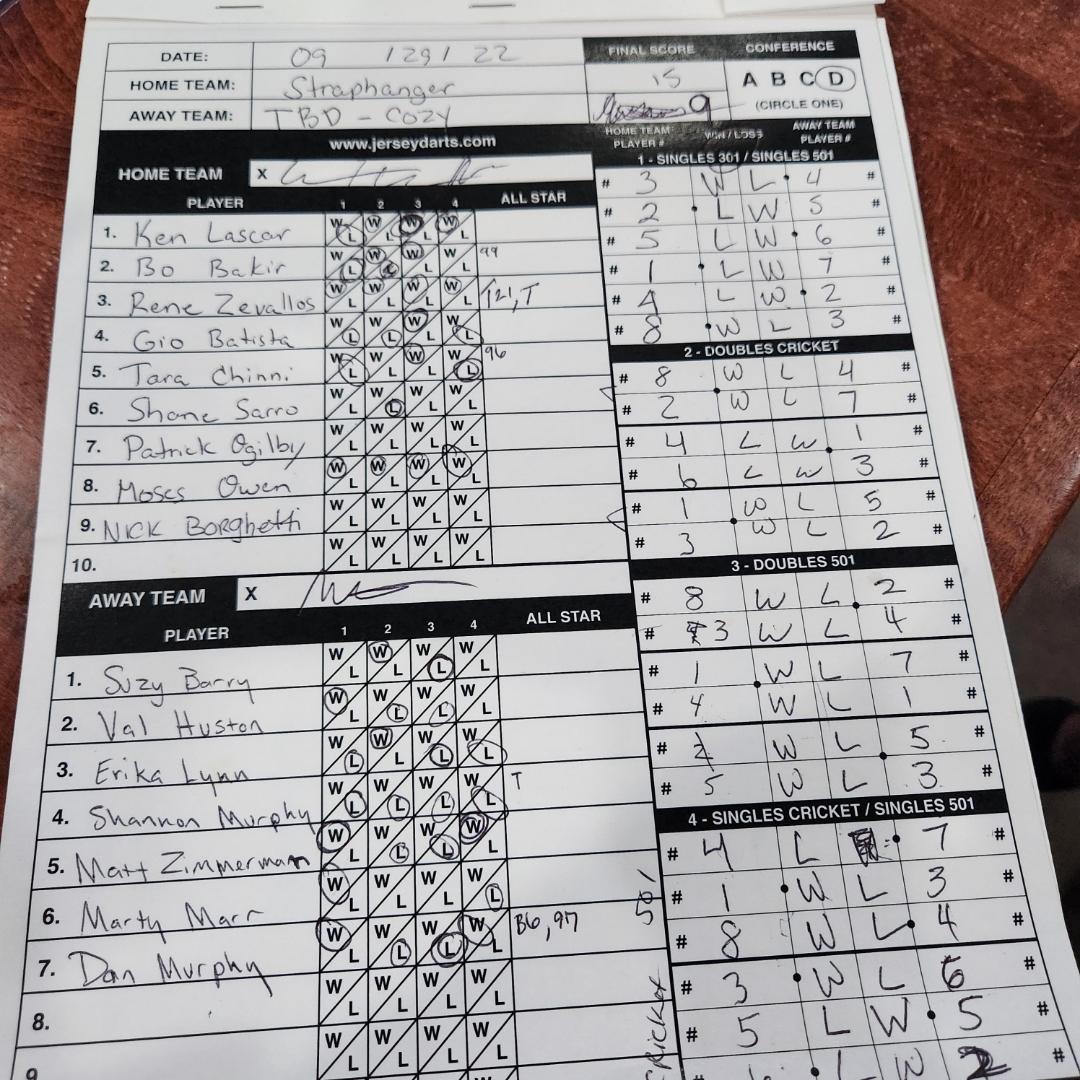 DATE: 09 / 29 / 22
HOME TEAM: Straphanger
AWAY TEAM: TBD - Cozy
FINAL SCORE
15
9
CONFERENCE
A B C D
(CIRCLE ONE)
www.jerseydarts.com
HOME TEAM X
PLAYER 1 2 3 4 ALL STAR
1. Ken Lascar W L W L W L W L
2. Bo Bakir W L W L W L W L 99
3. Rene Zevallos W L W L W L W L T21, T
4. Gio Batista W L W L W L W L
5. Tara Chinni W L W L W L W L 96
6. Shane Sarro W L W L W L W L
7. Patrick Ogilby W L W L W L W L
8. Moses Owen W L W L W L W L
9. NICK BORghetti W L W L W L W L
10. W L W L W L W L
AWAY TEAM X
PLAYER 1 2 3 4 ALL STAR
1. Suzy Barry W L W L W L W L
2. Val Huston W L W L W L W L
3. Erika Lynn W L W L W L W L
4. Shannon Murphy W L W L W L W L T
5. Matt Zimmerman W L W L W L W L
6. Marty Marr W L W L W L W L
7. Dan Murphy W L W L W L W L B6, 97
8. W L W L W L W L
9 W L W L W L W L
HOME TEAM PLAYER # WIN / LOSS AWAY TEAM PLAYER #
1 - SINGLES 301 / SINGLES 501
# 3 W L 4 #
# 2 L W 5 #
# 5 L W 6 #
# 1 L W 7 #
# 4 L W 2 #
# 8 W L 3 #
2 - DOUBLES CRICKET
# 8 W L 4 #
# 2 W L 7 #
# 4 L W 1 #
# 6 L W 3 #
# 1 W L 5 #
# 3 W L 2 #
3 - DOUBLES 501
# 8 W L 2 #
# 3 W L 4 #
# 1 W L 7 #
# 4 W L 1 #
# W L 5 #
# 5 W L 3 #
4 - SINGLES CRICKET / SINGLES 501
501
# 4 L 7 #
# 1 W L 3 #
# 8 W L 4 #
CRICKET
# 3 W L 6 #
# 5 L W 5 #
L W 2 #